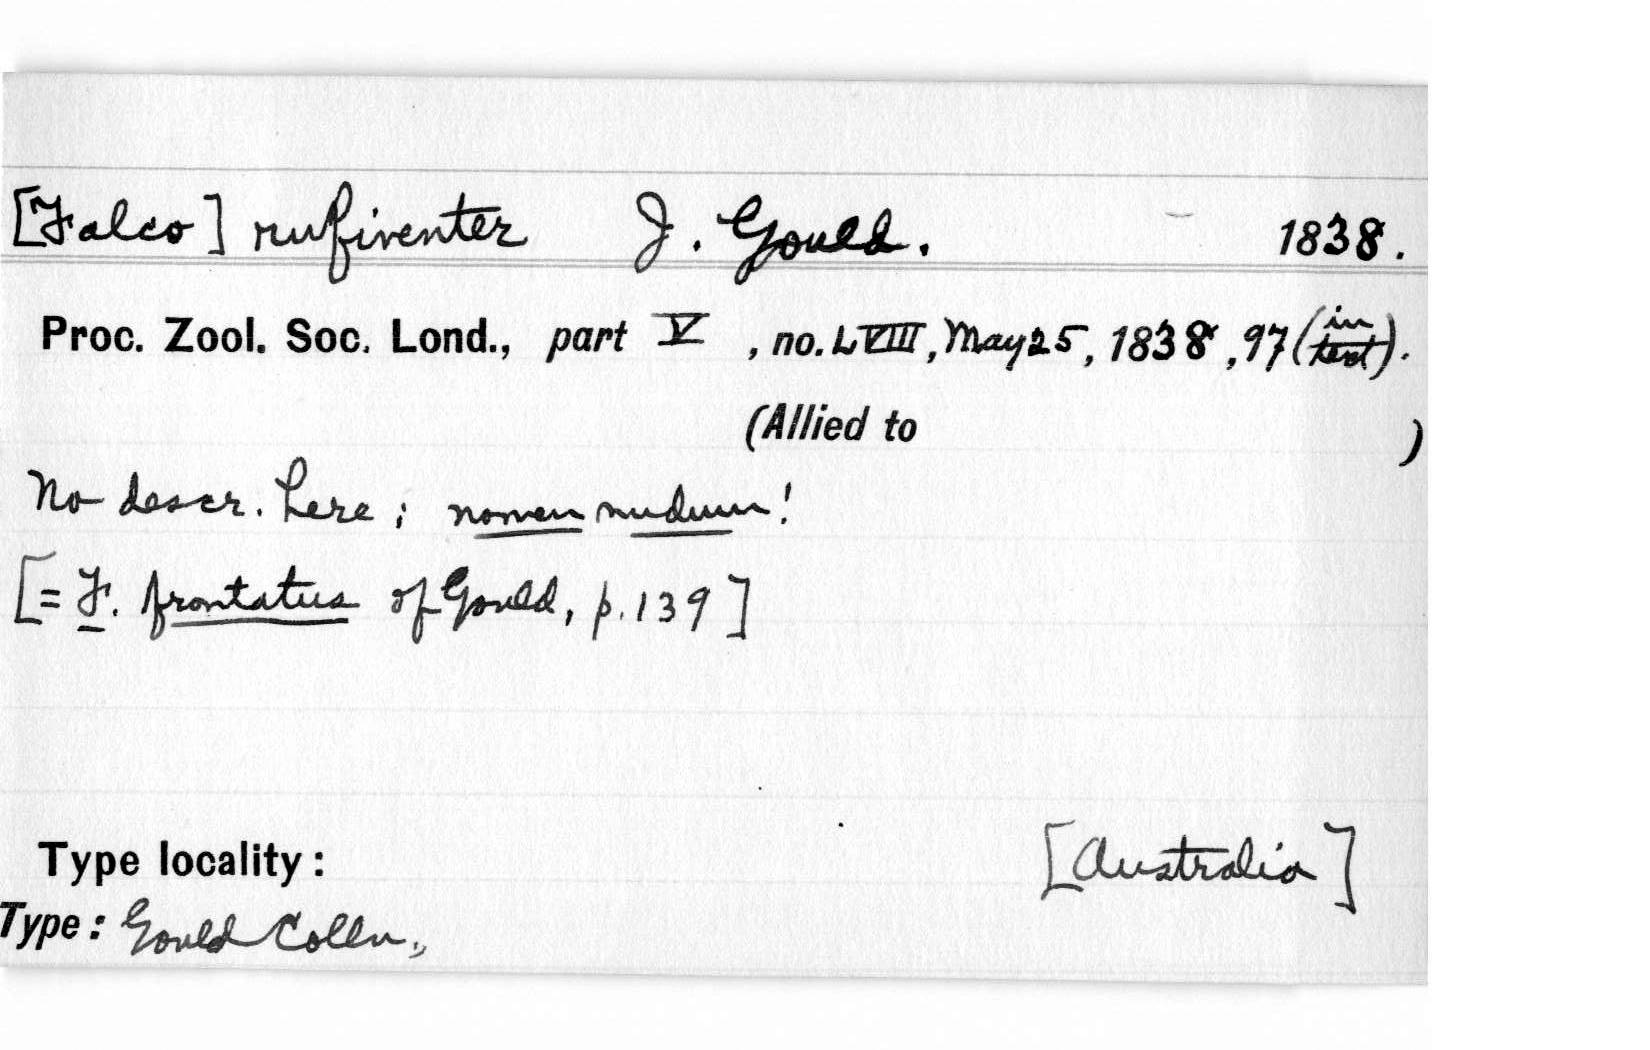 [Falco] rufiventer J. Gould. 1838.
Proc. Zool. Soc. Lond., part V, no. LVIII, May 25, 1838, 97 (in text).
(Allied to )
No descr. here; nomen nudum!
[= F. frontatus of Gould, p. 139]
Type locality: [Australia]
Type: Gould Colln.,